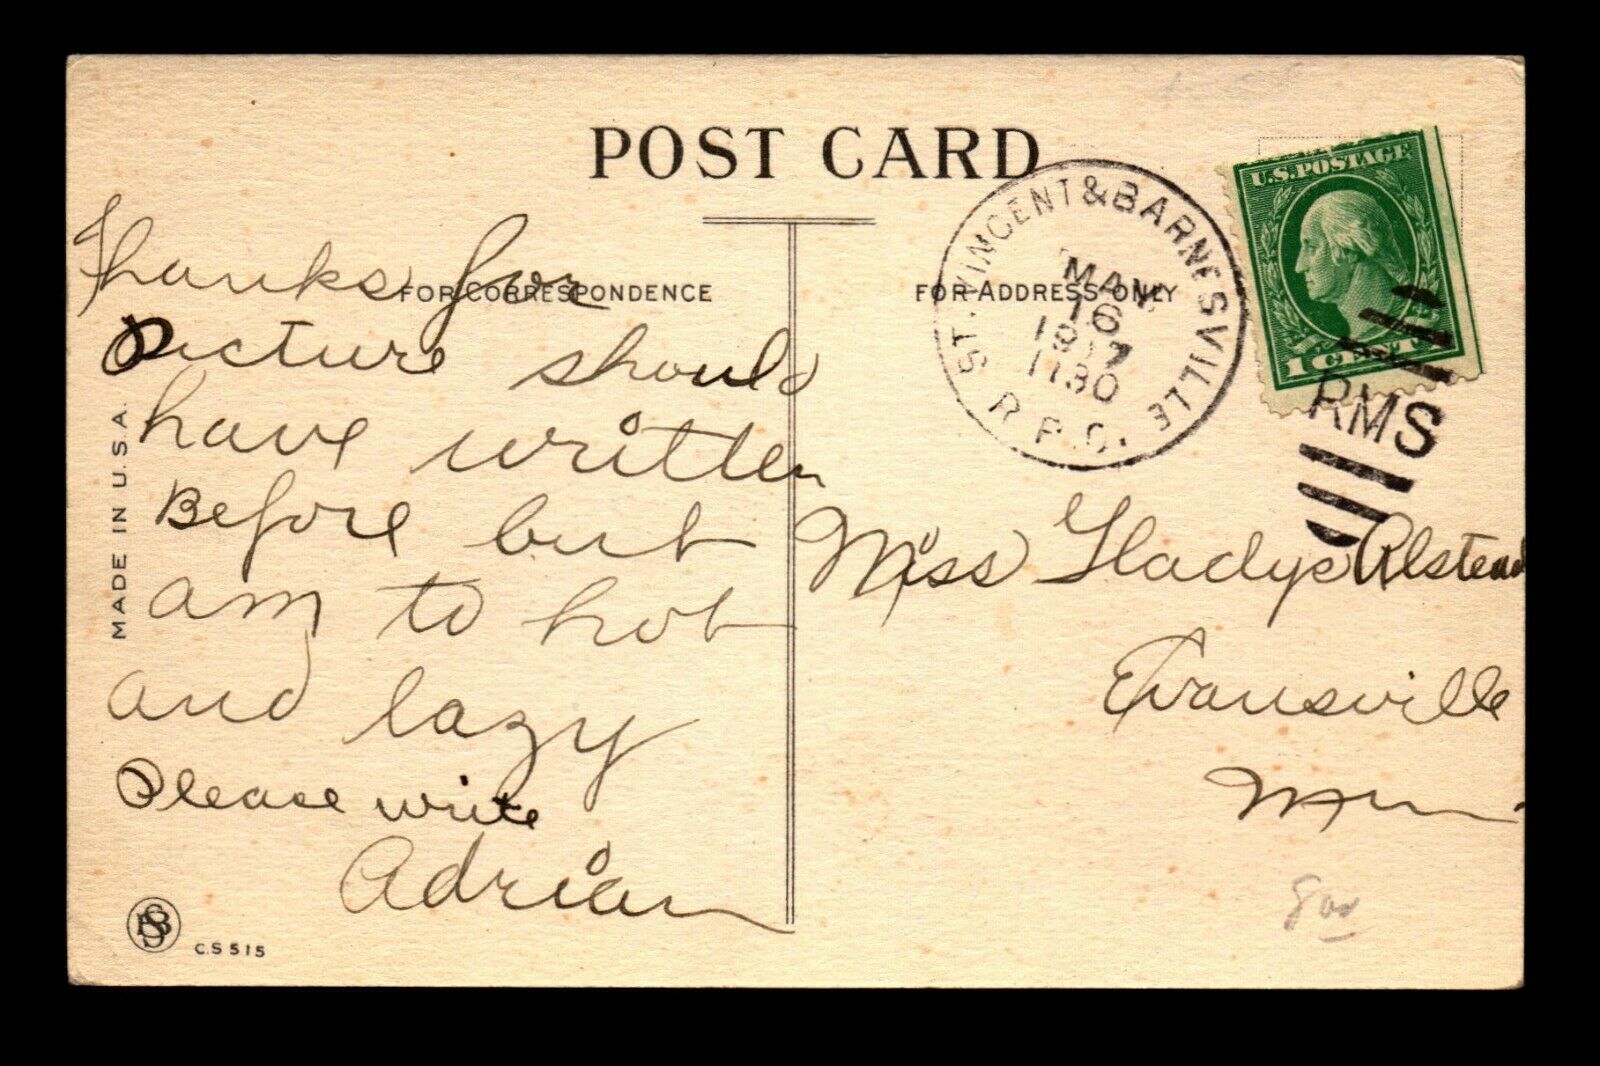 POST CARD
FOR CORRESPONDENCE
FOR ADDRESS ONLY
Thanks for
Picture should
have written
Before but
am to hot
and lazy
Please write
Adrian
MADE IN U.S.A.
C.S 515
ST. VINCENT & BARNESVILLE
MAY
16
1917
1130
R.P.O.
U.S. POSTAGE
1 CENT
RMS
Miss Gladys Alstead
Evansville
Minn